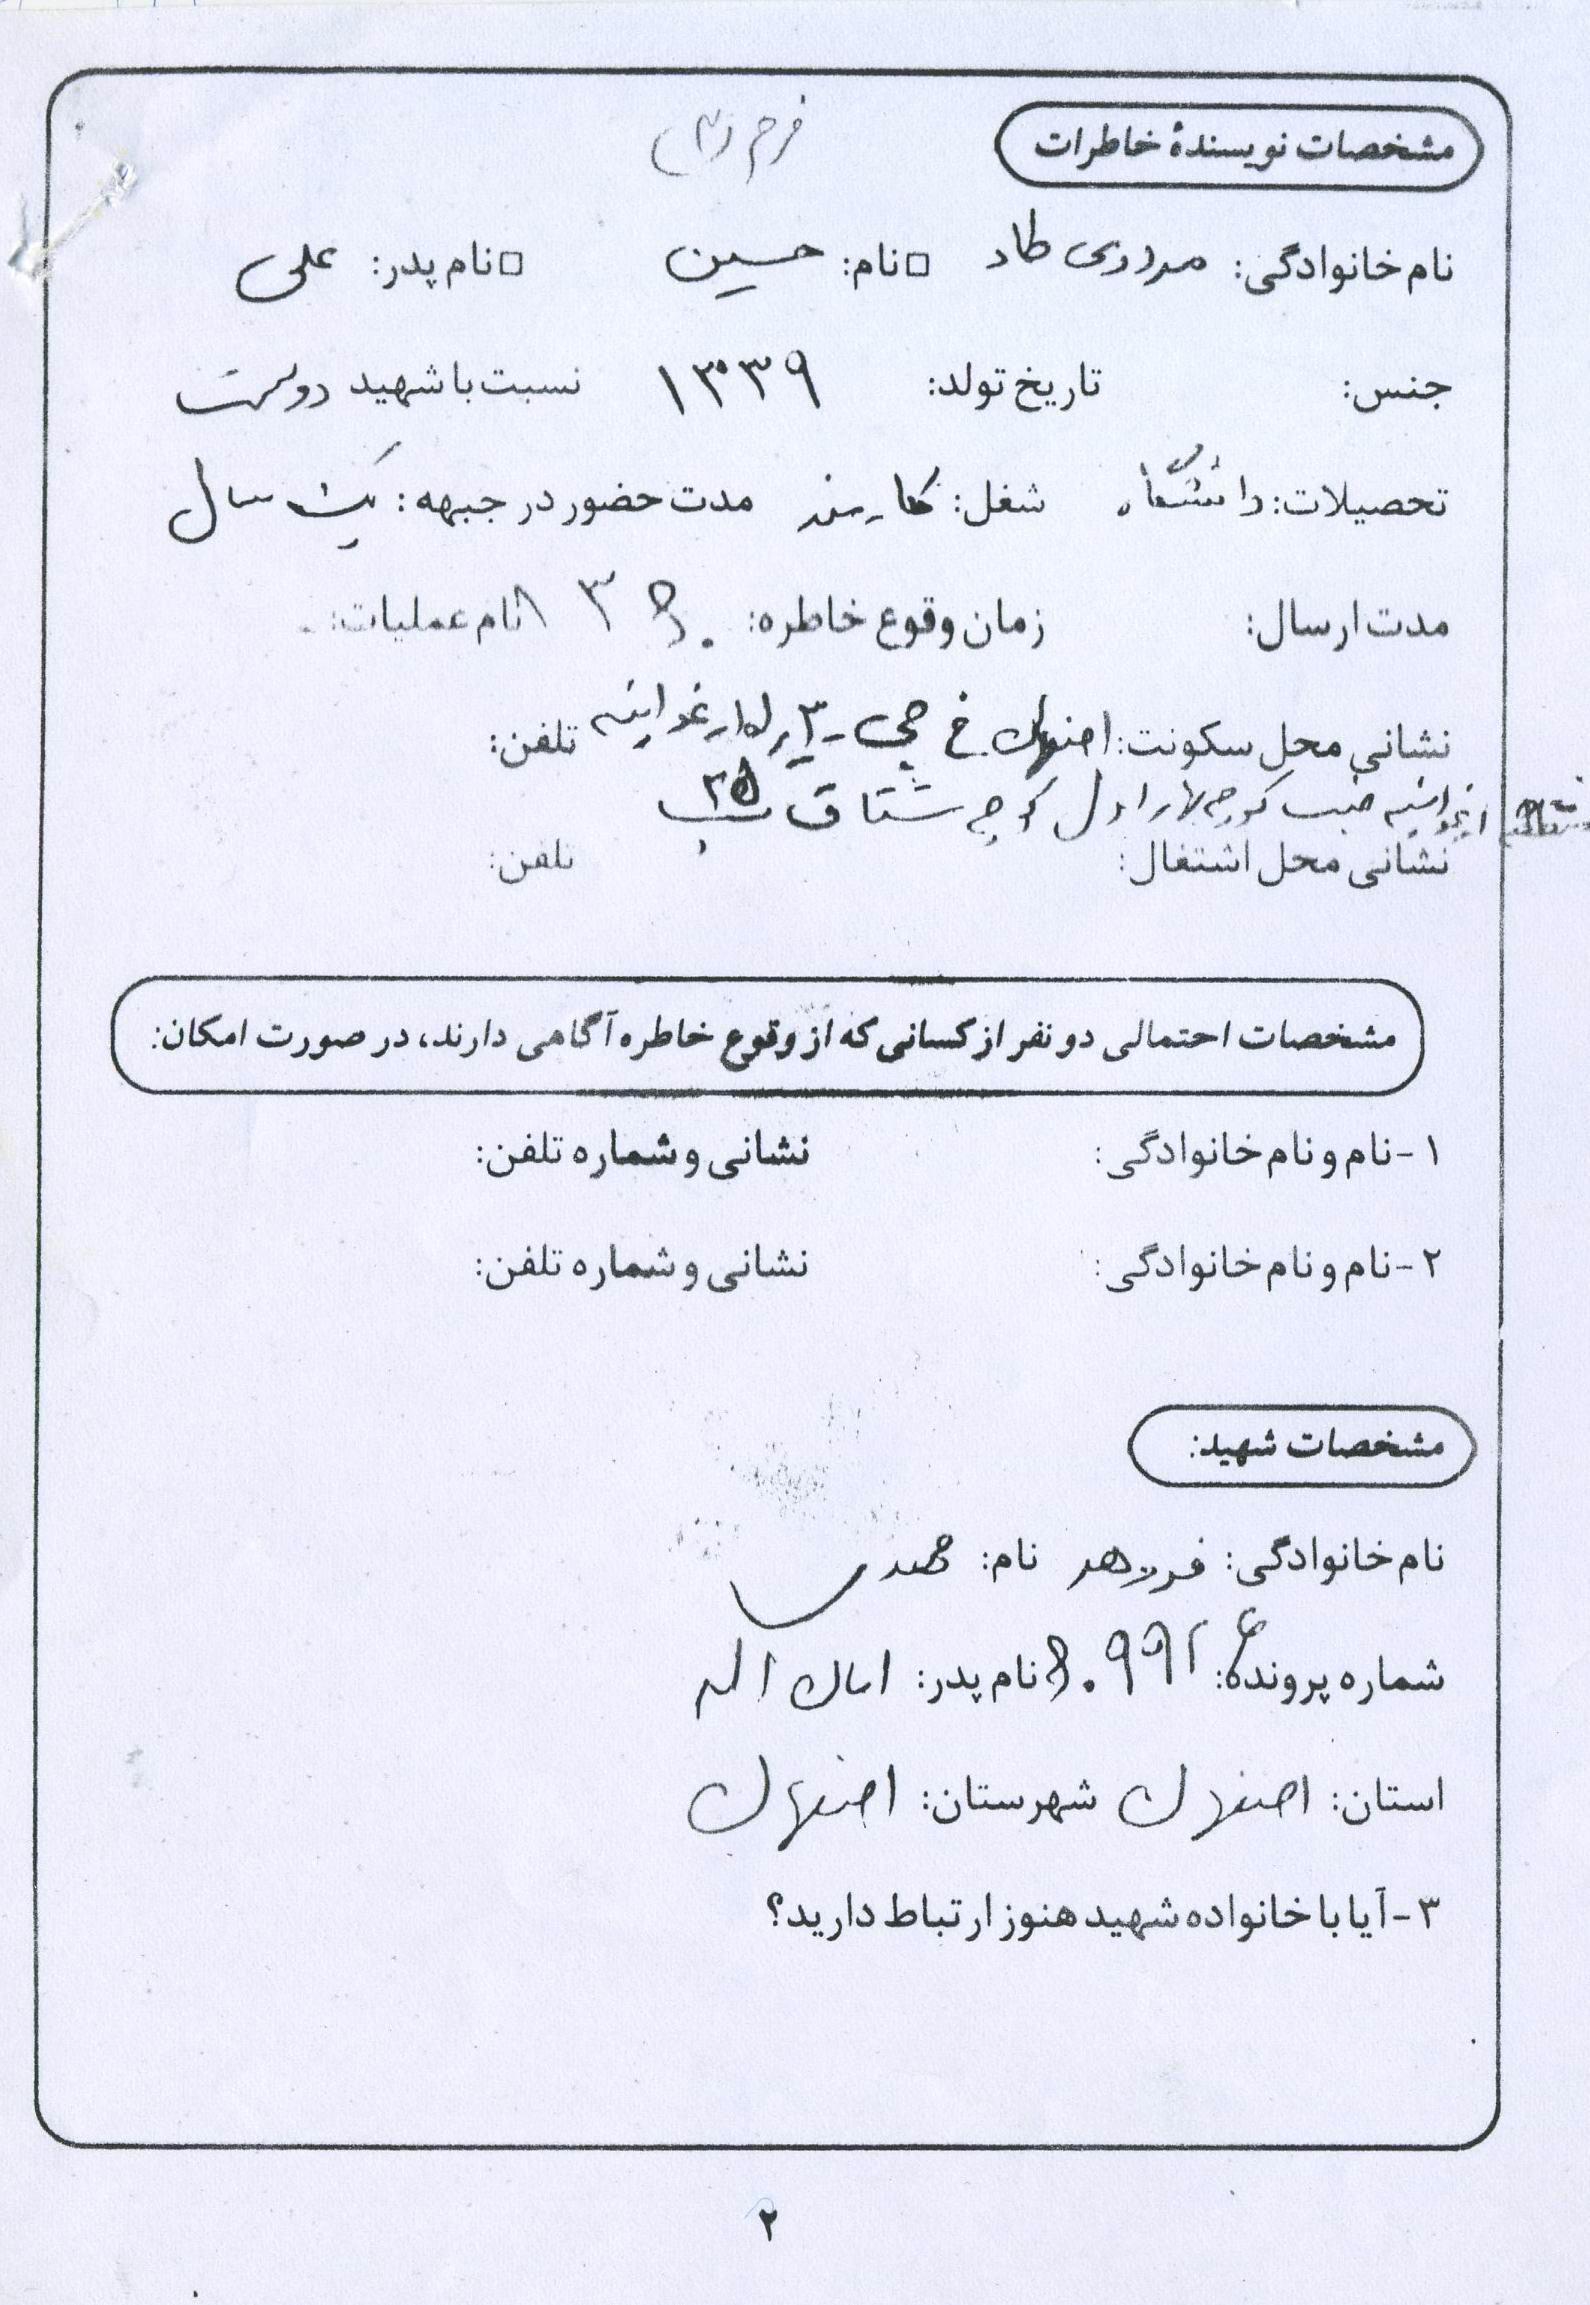 مشخصات نویسندهٔ خاطرات
فرم (۳)
نام خانوادگی: □ نام: حسین □ نام پدر: علی
جنس: تاریخ تولد: ۱۳۳۹ نسبت با شهید دوست
تحصیلات: دانشگاهی شغل: کارمند مدت حضور در جبهه: یک سال
مدت ارسال: زمان وقوع خاطره: ۱۳۶۰ نام عملیات:
نشانی محل سکونت: اصفهان خ جی - ۳ راه ارغوانیه تلفن:
ارغوانیه جنب کوچه بهار اول کوچه مشتاق پ ۲۵
نشانی محل اشتغال: تلفن:
مشخصات احتمالی دو نفر از کسانی که از وقوع خاطره آگاهی دارند، در صورت امکان:
۱- نام و نام خانوادگی: نشانی و شماره تلفن:
۲- نام و نام خانوادگی: نشانی و شماره تلفن:
مشخصات شهید:
نام خانوادگی: نام: مهدی
شماره پرونده: نام پدر: امان اله
استان: اصفهان شهرستان: اصفهان
۳- آیا با خانواده شهید هنوز ارتباط دارید؟
۲